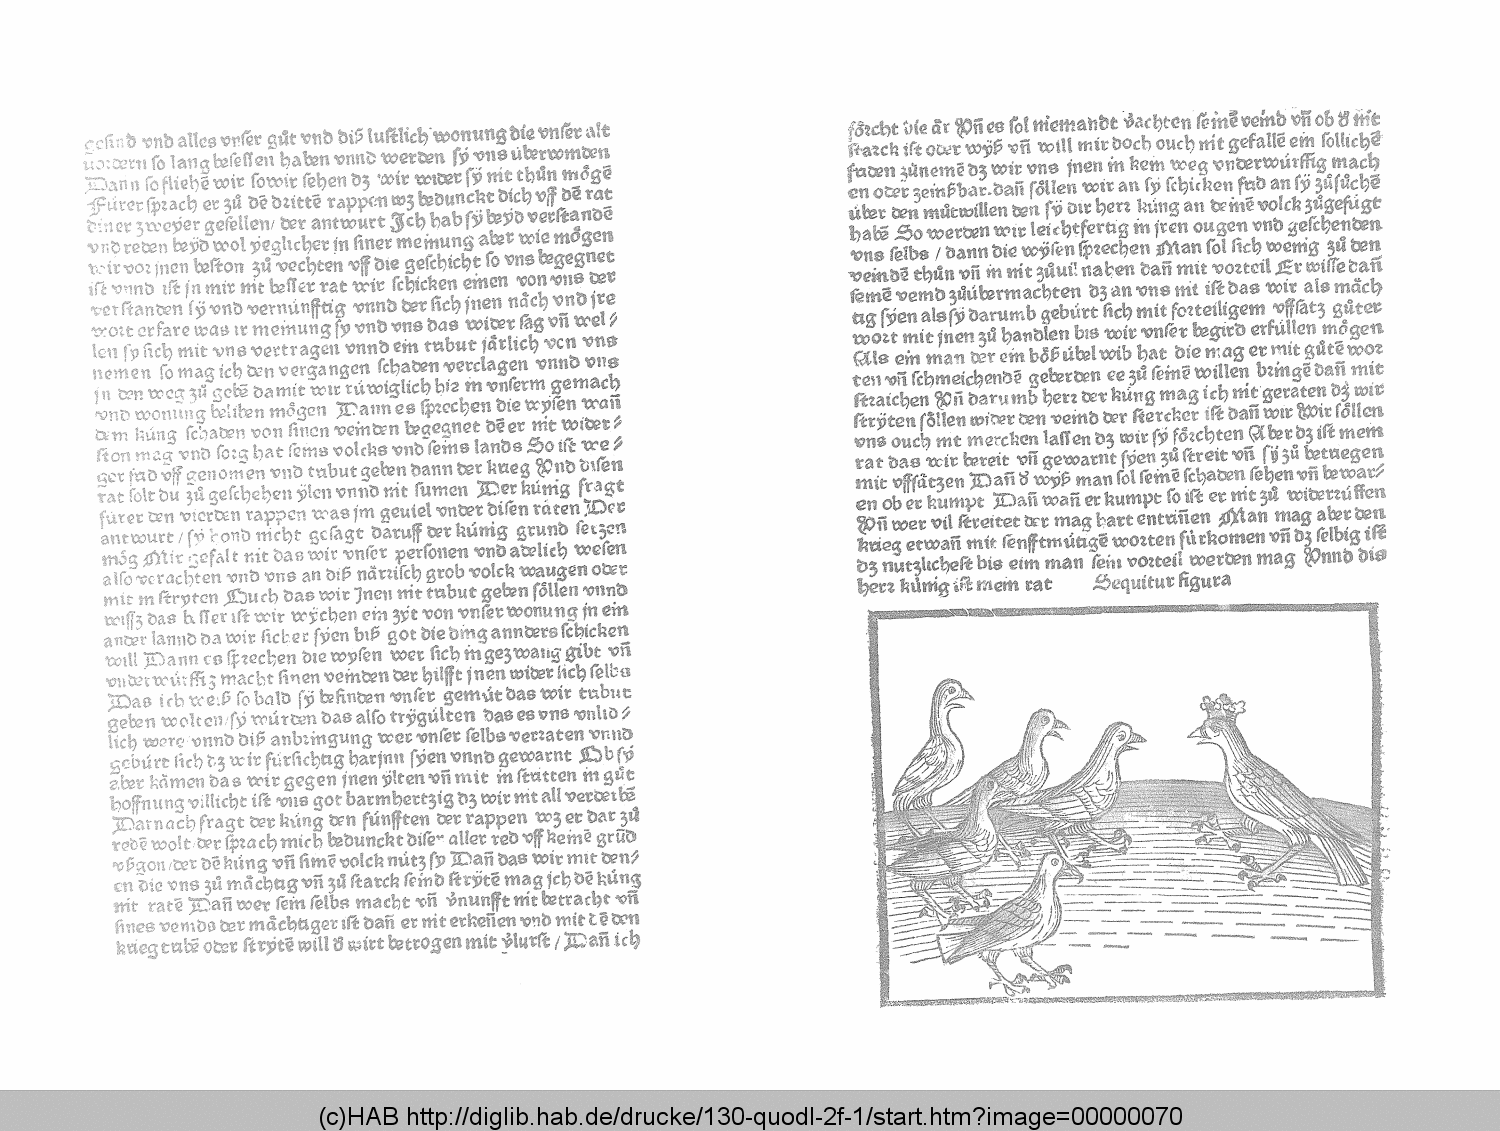 gesind vnd alles vnser gůt vnd diß lustlich wonung die vnser alt
vordern so lang besessen haben vnnd werden sÿ vns úberwinden
Dann so fliehẽ wir so wir sehen dz wir wider sÿ nit thůn mőgẽ
Fúrer sprach er zů dẽ drittẽ rappen wz beduncket dich vff dẽ rat
diner zweyer gesellen / der antwurt Ich hab sÿ beÿd verstandẽ
vnd reden beÿd wol ÿeglicher in siner meinung aber wie mőgen
wir vor jnen beston zů vechten vff die geschicht so vns begegnet
ist vnnd ist jn mir nit besser rat wir schicken einen von vns der
verstanden sÿ vnd vernúnfftig vnnd der sich jnen nåch vnd jre
wort erfare was ir meinung sÿ vnd vns das wider sag vñ wel⸗
len sy sich mit vns vertragen vnnd ein tribut jårlich von vns
nemen so mag ich den vergangen schaden verclagen vnnd vns
jn den weg zů gebẽ damit wir rúwiglich hie in vnserm gemach
vnd wonung beliben mőgen Dann es sprechen die wysen wañ
dem kúng schaden von sinen veinden begegnet dẽ er nit wider⸗
ston mag vnd sorg hat seins volcks vnd seins lands So ist we⸗
ger frid vff genomen vnd tribut geben dann der krieg Vnd disen
rat solt du zů geschehen ÿlen vnnd nit sumen Der kúnig fragt
fúrer den vierden rappen was jm geuiel vnder disen råten Der
antwurt / sÿ hond nicht gesagt daruff der kúnig grund setzen
mőg Mir gefalt nit das wir vnser personen vnd adelich wesen
also verachten vnd vns an diß nårrisch grob volck waugen oder
mit in stryten Ouch das wir Jnen nit tribut geben sőllen vnnd
wissz das besser ist wir wÿchen ein zÿt von vnser wonung jn ein
ander lannd da wir sicher sÿen biß got die ding annders schicken
will Dann es sprechen die wysen wer sich in gezwang gibt vñ
vnderwúrffig macht sinen veinden der hilfft jnen wider sich selbs
Das ich weiß so bald sÿ befinden vnser gemút das wir tribut
geben wolten / sÿ wúrden das also trÿgúlten das es vns vnlid⸗
lich were vnnd diß anbringung wer vnser selbs verraten vnnd
gebúrt sich dz wir fúrsichtig harjnn sÿen vnnd gewarnt Ob sÿ
aber kåmen das wir gegen jnen ÿlten vñ mit in stritten in gůt
hoffnung villicht ist vns got barmhertzig dz wir nit all verderbẽ
Darnach fragt der kúng den fúnfften der rappen wz er dar zů
redẽ wolt der sprach mich beduncket diser aller red vff keinẽ grũd
vßgon / der dẽ kúng vñ sinẽ volck nútz sy Dañ das wir mit den⸗
en die vns zů måchtig vñ zů starck seind strÿtẽ mag jch dẽ kúng
nit ratẽ Dañ wer sein selbs macht vñ v̓nunfft nit betracht vñ
sines veinds der måchtiger ist dañ er nit erkeñen vnd mit dẽ den
krieg tribẽ oder strÿtẽ will d' wirt betrogen mit v̓lurst / Dañ ich
főrcht die år Vñ es sol niemandt v̓achten seinẽ veind vñ ob d' nit
starck ist oder wÿß vñ will mir doch ouch nit gefallẽ ein sollichẽ
friden zůnemẽ dz wir vns jnen in kein weg vnderwúrffig mach
en oder zeinßbar. dañ sőllen wir an sÿ schicken frid an sÿ zůsůchẽ
úber den můtwillen den sÿ dir herr kúng an deinẽ volck zůgefúgt
habẽ So werden wir leichtfertig in jren ougen vnd geschenden
vns selbs / dann die wÿsen sprechen Man sol sich wenig zů den
veindẽ thůn vñ in nit zůuil nahen dañ mit vorteil Er wisse dañ
seinẽ veind zůúbermachten dz an vns nit ist das wir als måch
tig sÿen als sÿ darumb gebúrt sich mit forteiligem vffsåtz gůter
wort mit jnen zů handlen bis wir vnser begird erfúllen mőgen
Als ein man der ein bőß úbel wib hat die mag er mit gůtẽ wor
ten vñ schmeichendẽ geberden ee zů seinẽ willen bringẽ dañ mit
straichen Vñ darumb herr der kúng mag ich nit geraten dz wir
strÿten sőllen wider den veind der stercker ist dañ wir Wir sőllen
vns ouch nit mercken lassen dz wir sÿ főrchten Aber dz ist mein
rat das wir bereit vñ gewarnt sÿen zů streit vñ sÿ zů betriegen
mit vffsåtzen Dañ d' wÿß man sol seinẽ schaden sehen vñ bewar⸗
en ob er kumpt Dañ wañ er kumpt so ist er nit zů widerrúffen
Vñ wer vil streitet der mag hart entriñen Man mag aber den
krieg etwañ mit senfftmútigẽ worten fúrkomen vñ dz selbig ist
dz nutzlichest bis eim man sein vorteil werden mag Vnnd dis
herr kúnig ist mein rat Sequitur figura
(c)HAB http://diglib.hab.de/drucke/130-quodl-2f-1/start.htm?image=00000070